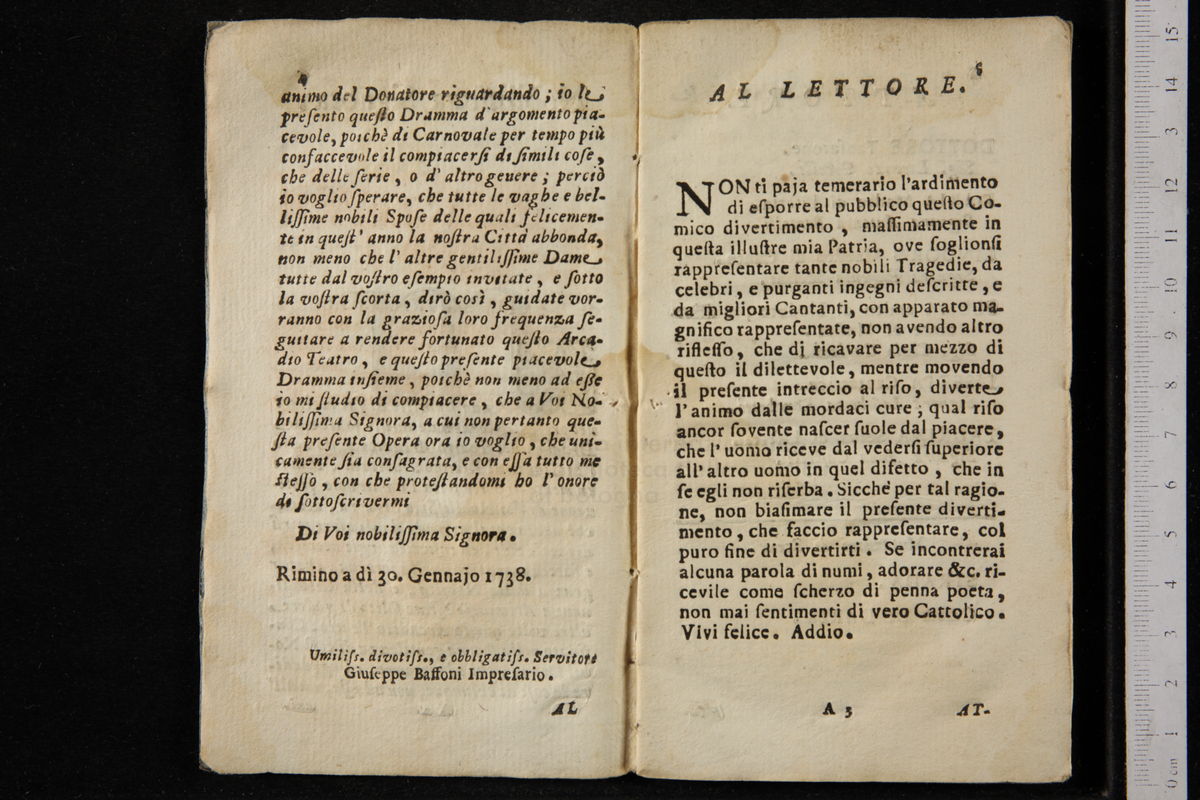 4
animo del Donatore riguardando ; io le
preſento queſto Dramma d'argomento pia-
cevole, poichè di Carnovale per tempo più
confaccevole il compiacerſi di ſimili coſe ,
che delle ſerie , o d' altro geuere ; perciò
io voglio ſperare, che tutte le vaghe e bel-
liſſime nobili Spoſe delle quali felicemen-
te in queſt' anno la noſtra Città abbonda,
non meno che l' altre gentiliſſime Dame
tutte dal voſtro eſempio invitate , e ſotto
la voſtra ſcorta , dirò così , guidate vor-
ranno con la grazioſa loro frequenza ſe-
guitare a rendere fortunato queſto Arca-
dio Teatro , e queſto preſente piacevole
Dramma inſieme , poichè non meno ad eſſe
io mi ſtudio di compiacere , che a Voi No-
biliſſima Signora, a cui non pertanto que-
ſta preſente Opera ora io voglio , che uni-
camente ſia conſagrata, e con eſſa tutto me
ſteſſo , con che proteſtandomi ho l' onore
di ſottoſcrivermi
Di Voi nobiliſſima Signora.
Rimino a dì 30. Gennajo 1738.
Umiliſs. divotiſs., e obbligatiſs. Servitore
Giuſeppe Baffoni Impreſario.
AL
AL LETTORE.
NON ti paja temerario l'ardimento
di eſporre al pubblico queſto Co-
mico divertimento , maſſimamente in
queſta illuſtre mia Patria, ove ſoglionſi
rappreſentare tante nobili Tragedie, da
celebri , e purganti ingegni deſcritte , e
da migliori Cantanti, con apparato ma-
gnifico rappreſentate, non avendo altro
rifleſſo, che di ricavare per mezzo di
queſto il dilettevole, mentre movendo
il preſente intreccio al riſo, diverte
l'animo dalle mordaci cure ; qual riſo
ancor ſovente naſcer ſuole dal piacere,
che l' uomo riceve dal vederſi ſuperiore
all' altro uomo in quel difetto , che in
ſe egli non riſerba. Sicchè per tal ragio-
ne, non biaſimare il preſente diverti-
mento, che faccio rappreſentare, col
puro fine di divertirti. Se incontrerai
alcuna parola di numi, adorare &c. ri-
cevile come ſcherzo di penna poeta,
non mai ſentimenti di vero Cattolico.
Vivi felice. Addio.
A 3
AT-
0 cm 1 2 3 4 5 6 7 8 9 10 11 12 13 14 15